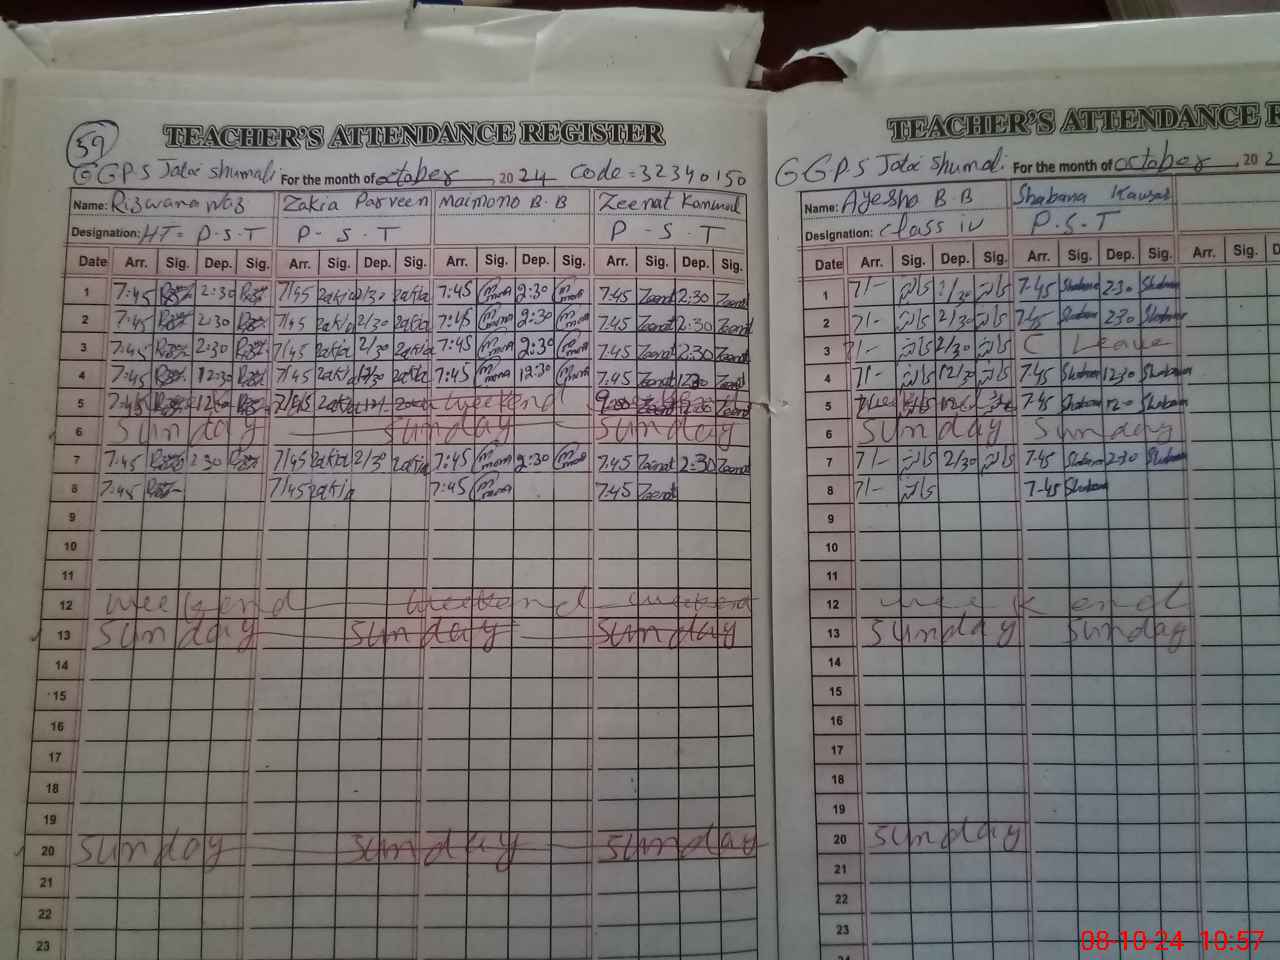 59
TEACHER'S ATTENDANCE REGISTER
GGPS Jotoi Shumali For the month of october, 2024 Code = 32340150
Name: Rizwana Naz Zakia Parveen Maimono B.B Zeenat Kanwal
Designation: HT= P-S-T P-S-T P-S-T
Date Arr. Sig. Dep. Sig. Arr. Sig. Dep. Sig. Arr. Sig. Dep. Sig. Arr. Sig. Dep. Sig.
1 7:45 2:30 7/45 Zakia 2/30 Zakia 7:45 2:30 7:45 Zeenat 2:30 Zeenat
2 7:45 2:30 7/45 Zakia 2/30 Zakia 7:45 2:30 7:45 Zeenat 2:30 Zeenat
3 7:45 2:30 7/45 Zakia 2/30 Zakia 7:45 2:30 7:45 Zeenat 2:30 Zeenat
4 7:45 12:30 7/45 Zakia Zakia 7:45 12:30 7:45 Zeenat 1230 Zeenat
5 7:45 7/45 Zakia Zakia weekend Zeenat Zeenat
6 Sunday Sunday Sunday
7 7:45 2:30 7/45 Zakia 2/30 Zakia 7:45 2:30 7:45 Zeenat 2:30 Zeenat
8 7:45 7/45 Zakia 7:45 7:45 Zeenat
9
10
11
12 weekend weekend weekend
13 Sunday Sunday Sunday
14
15
16
17
18
19
20 Sunday Sunday Sunday
21
22
23
TEACHER'S ATTENDANCE
GGPS Jotoi Shumali For the month of october, 20
Name: Ayesha B.B Shabana Kausar
Designation: class iv P.S.T
Date Arr. Sig. Dep. Sig. Arr. Sig. Dep. Sig. Arr. Sig.
1 7/- 2/30 7-45 Shabana 2-30 Shabana
2 7/- 2/30 7-45 Shabana 230 Shabana
3 7/- 2/30 C Leave
4 7/- 12/30 7-45 Shabana 1230 Shabana
5 7-45 Shabana Shabana
6 Sunday Sunday
7 7/- 2/30 7-45 Shabana 2-30 Shabana
8 7/- 7-45 Shabana
9
10
11
12 week end
13 Sunday Sunday
14
15
16
17
18
19
20 Sunday
21
22
23
08-10-24 10:57